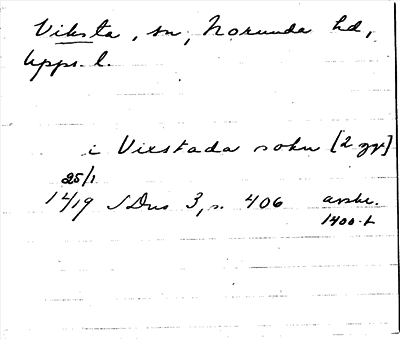 Viksta, sn, Norunda hd,
Upps. l.
i Viestada sokn [2 ggr]
25/1
1419 SDns 3, s. 406 avskr.
1400-t